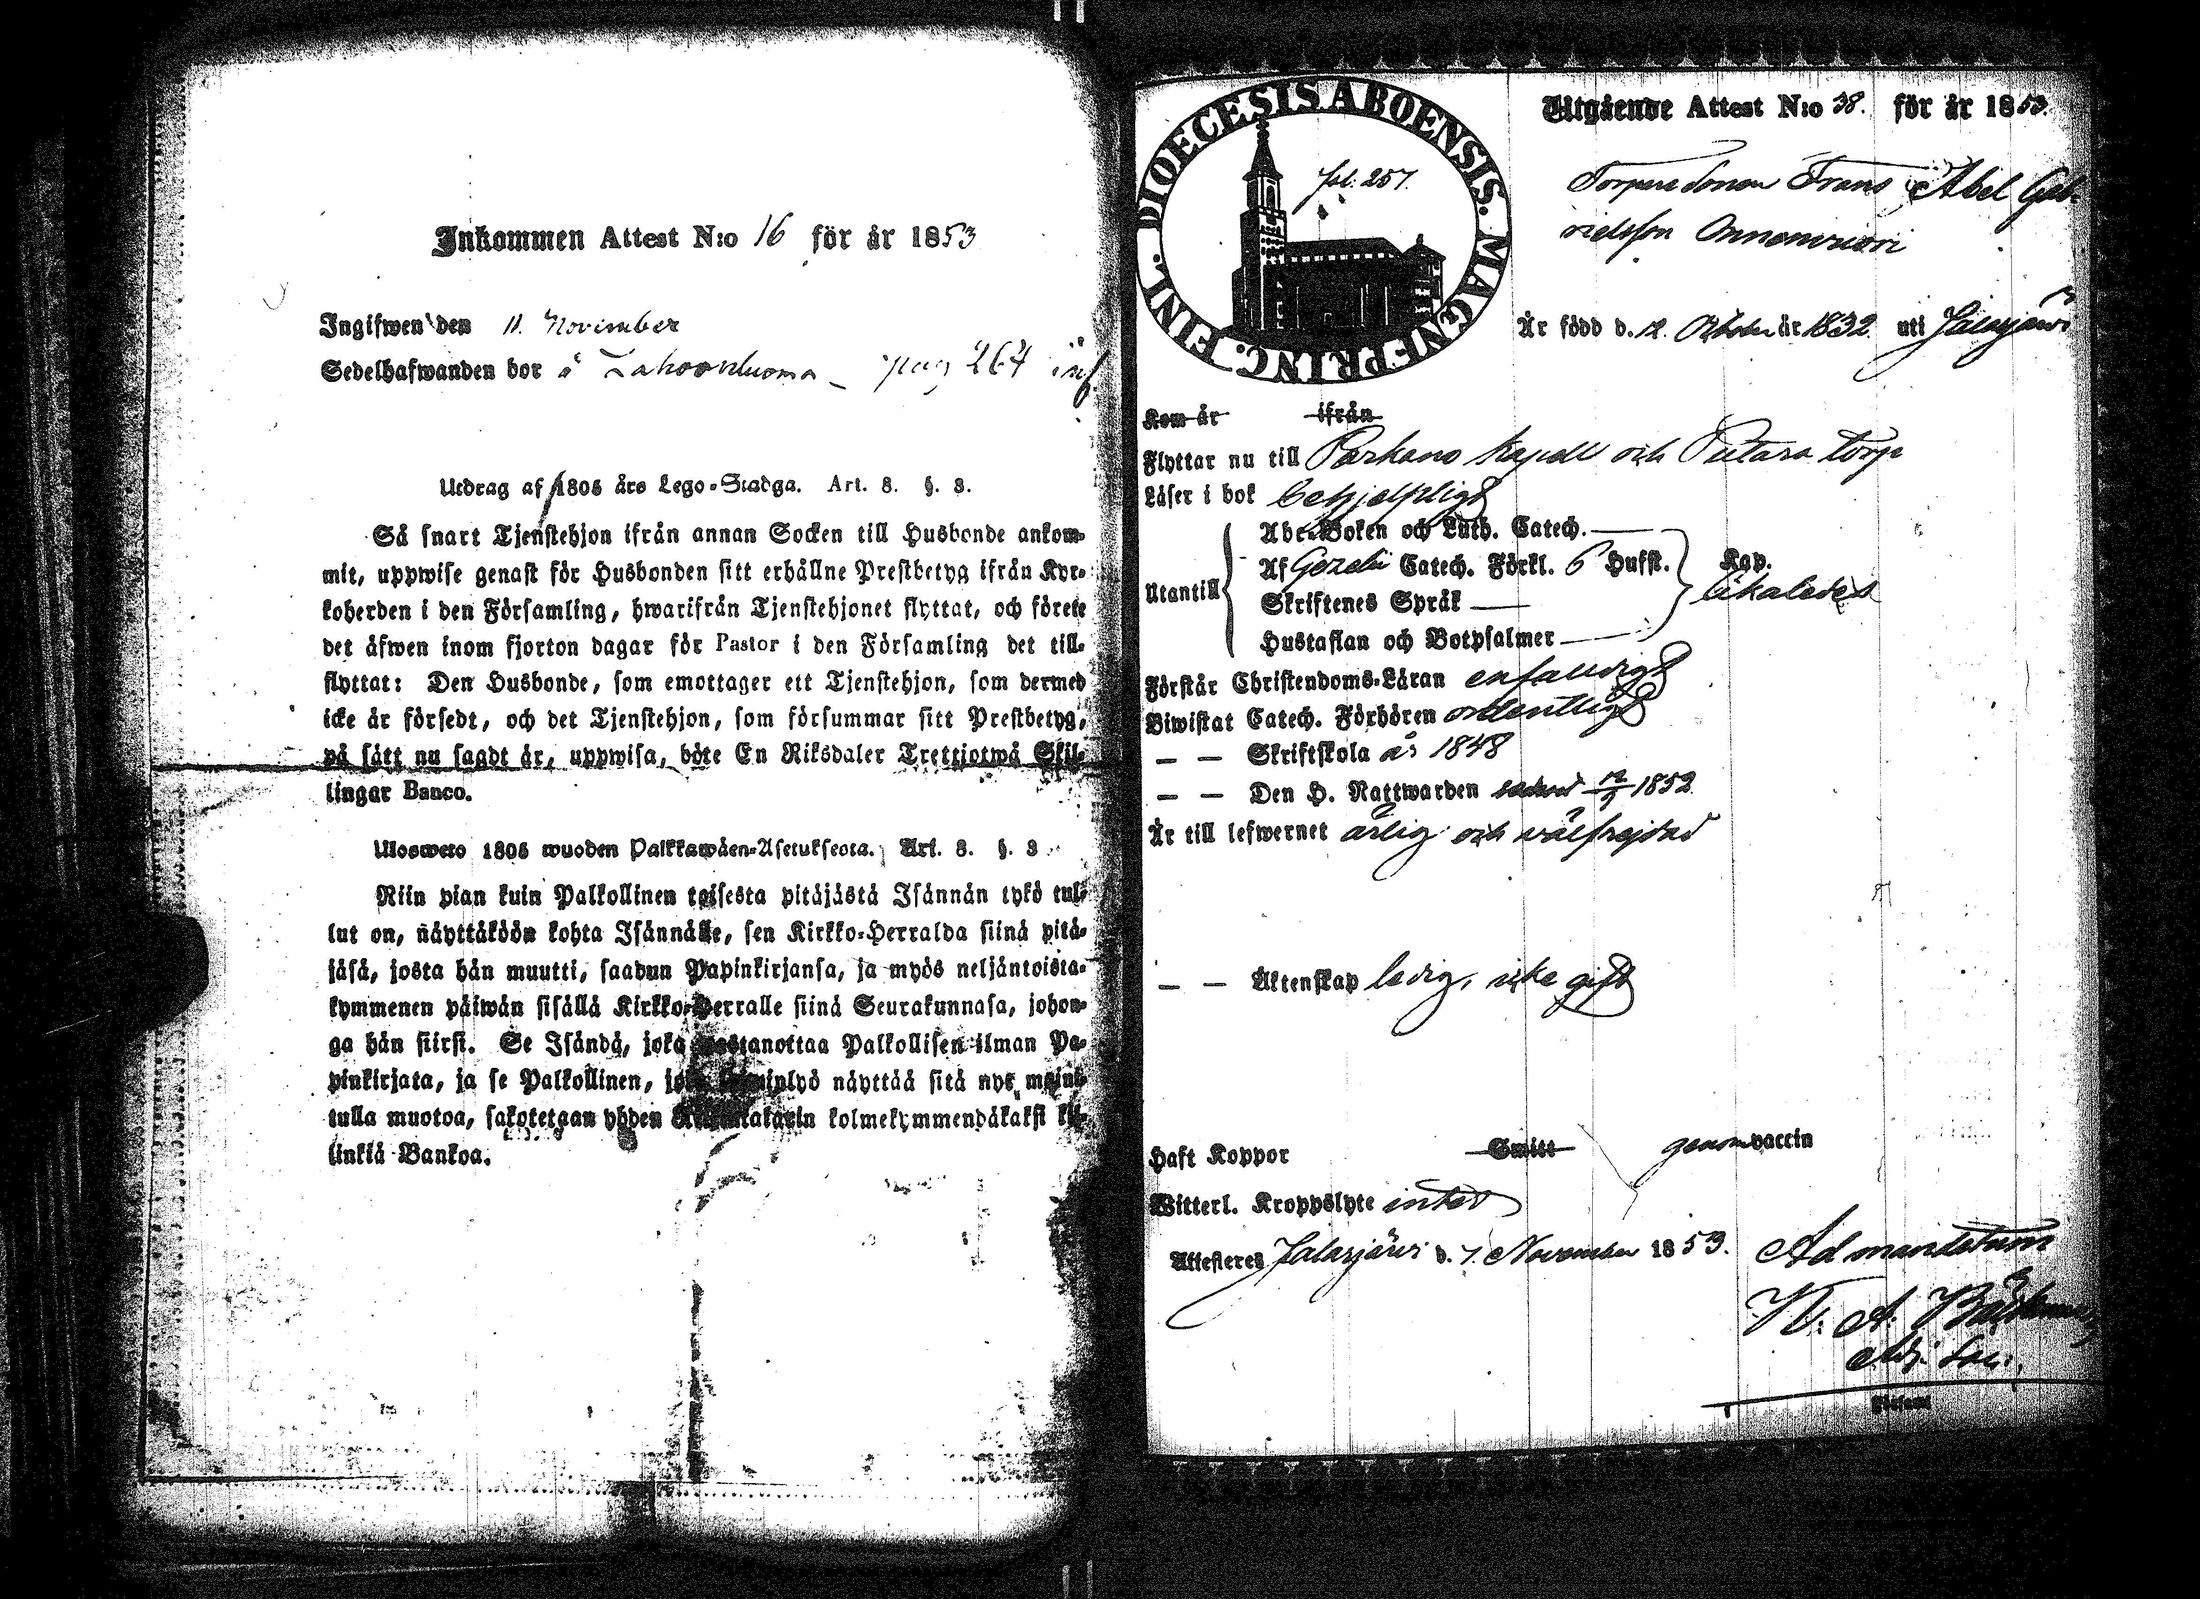 Inkommen Attest N:o 16 för år 1853
Ingifwen den 11. November
Sedelhafwanden bor å pag 267 inf
Utdrag af 1805 års Lego-Stadga. Art. 8. §. 3.
Så snart Tjenstehjon ifrån annan Socken till Husbonde ankom-
mit, uppwise genast för Husbonden sitt erhållne Prestbetyg ifrån Kyr-
koherden i den Församling, hwarifrån Tjenstehjonet flyttat, och förete
det äfwen inom fjorton dagar för Pastor i den Församling det till-
flyttat: Den Husbonde, som emottager ett Tjenstehjon, som dermed
icke är försedt, och det Tjenstehjon, som försummar sitt Prestbetyg,
på sätt nu sagdt är, uppwisa, böte En Riksdaler Trettiotwå Skil-
lingar Banco.
Ulosweto 1805 wuoden Palkkawäen-Asetuksesta. Art. 8. §. 3.
Niin pian kuin Palkollinen toisesta pitäjästä Isännän tykö tul-
lut on, näyttäköön kohta Isännälle, sen Kirkko-Herralda siinä pitä-
jäsä, josta hän muutti, saadun Papinkirjansa, ja myös neljäntoista-
kymmenen päiwän sisällä Kirkko-Herralle siinä Seurakunnasa, johon-
ga hän siirsi. Se Isändä, joka wastanottaa Palkollisen ilman Pa-
pinkirjata, ja se Palkollinen, näyttää sitä nyt mainit-
tulla muotoa, sakotetaan yhden kolmekymmendäkaksi kil-
linkiä Bankoa.
DIOECESIS ABOENSIS. MAGN. PRINC. FINL.
fol. 257.
Utgående Attest N:o 38. för år 1853.
Torparesonen Frans Abel Gab-
rielsson
Är född d. 12. Oktober år 1832. uti Jalasjärvi
Kom år ifrån
Flyttar nu till Parkano Kapell och torp
Läser i bok behjelpligt
Abc-Boken och Luth. Catech. —
Utantill Af Gezelii Catech. Förkl. 6 Hufst. Kap.
Skriftenes Språk — likaledes
Hustaflan och Botpsalmer —
Förstår Christendoms-Läran enfaldigt
Biwistat Catech. Förhören ordentligt
— — Skriftskola år 1848
— — Den H. Nattwarden 12/9 1852
Är till lefwernet ärlig och välfrejdad
— — Äktenskap ledig, icke gift
Haft Koppor Smitt genom vaccin
Witterl. Kroppslyte intet
Attesteres Jalasjärvi d. 7. November 1853. Ad mandatum